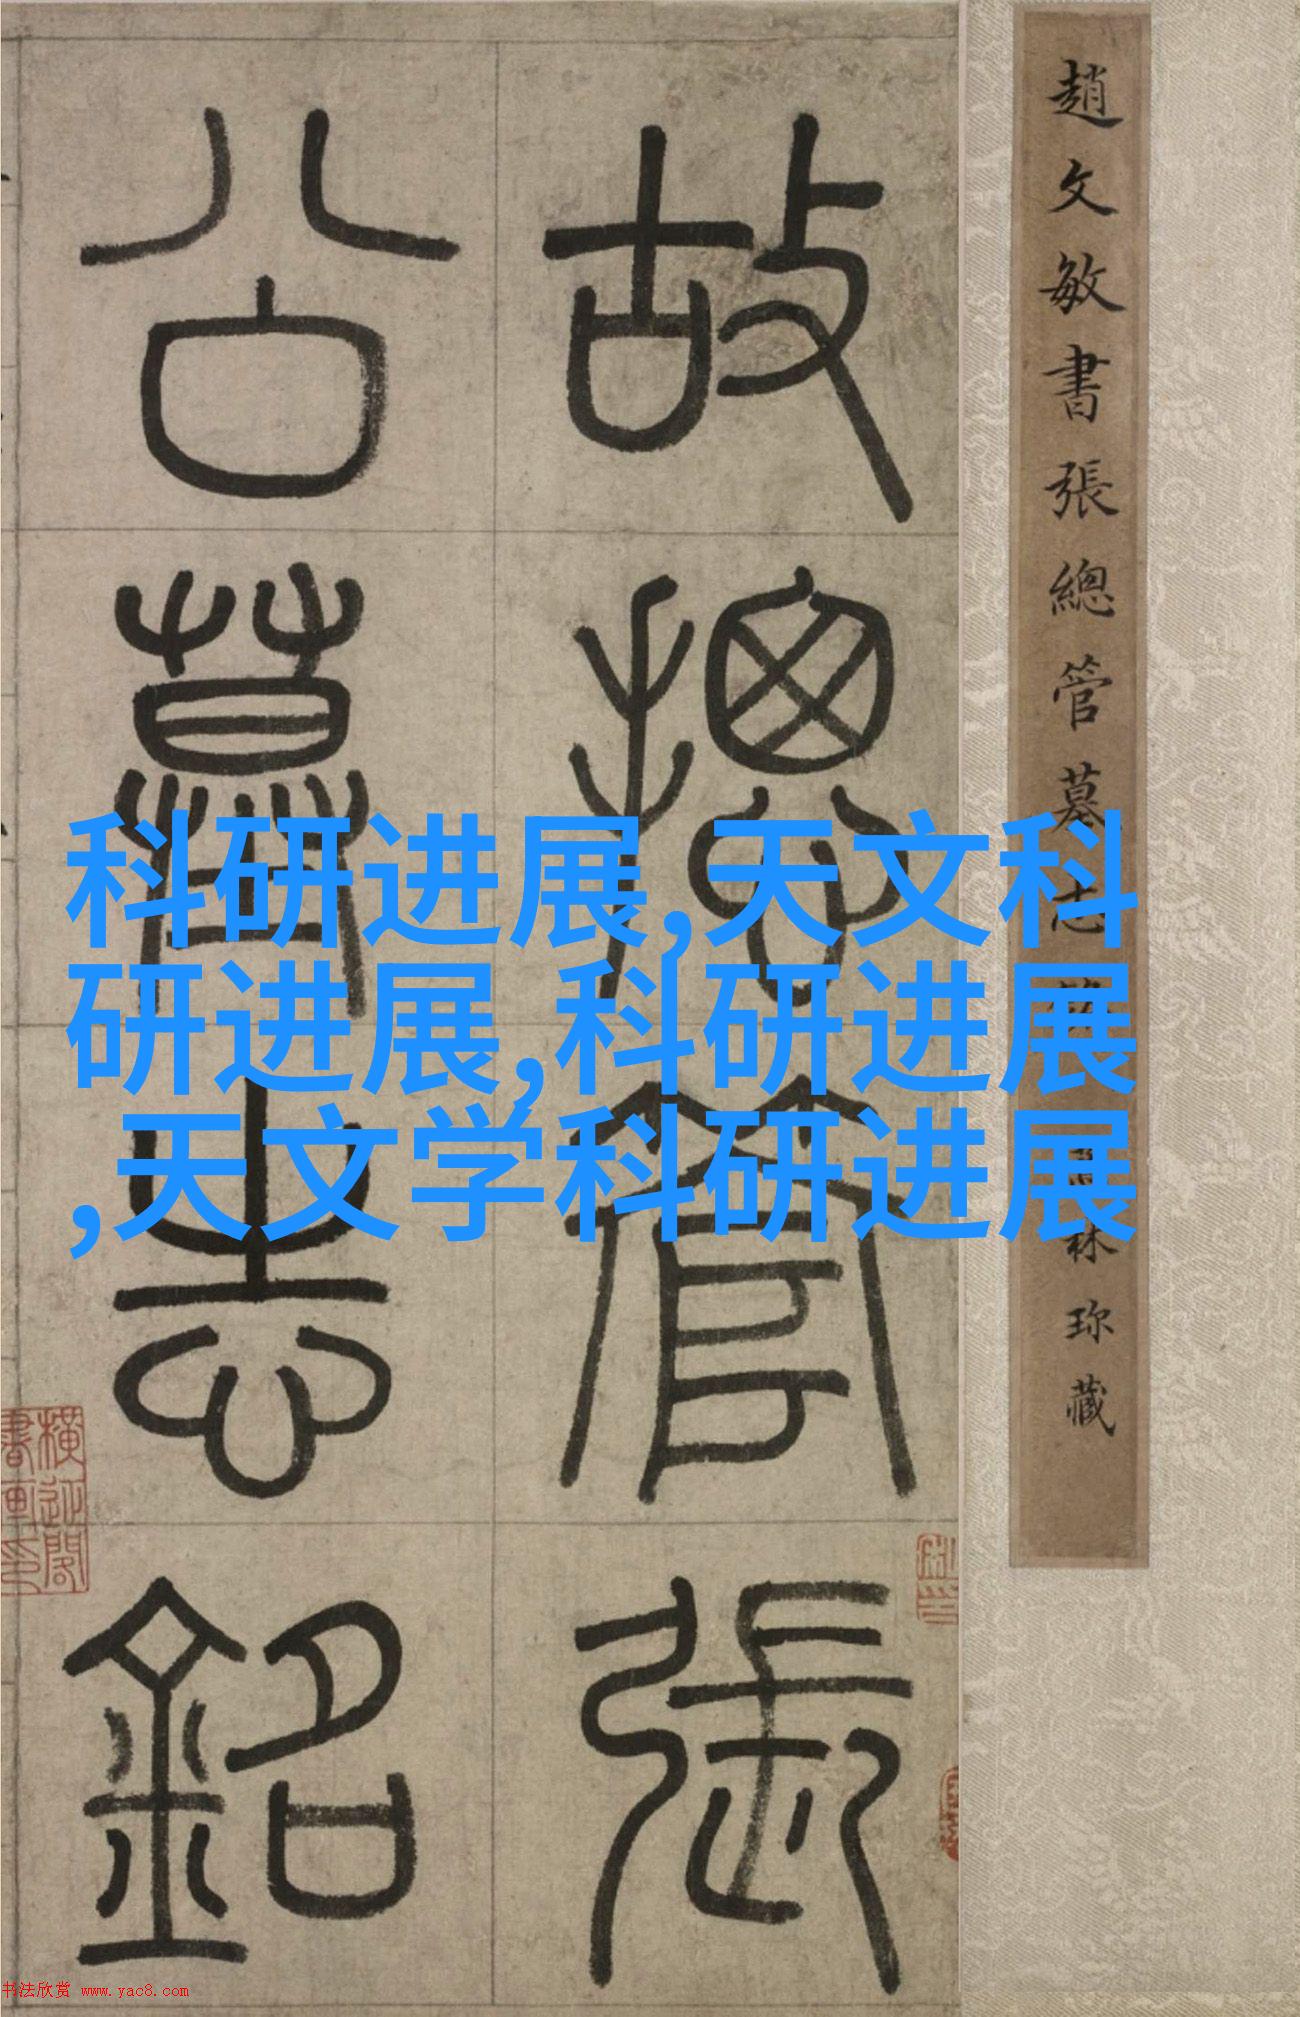 趙文敏書張總管墓志
珎藏
故總管張
公墓志銘
科研进展,天文科
研进展,科研进展
,天文学科研进展
横迎閣
書画印
书法欣赏 www.yac8.com